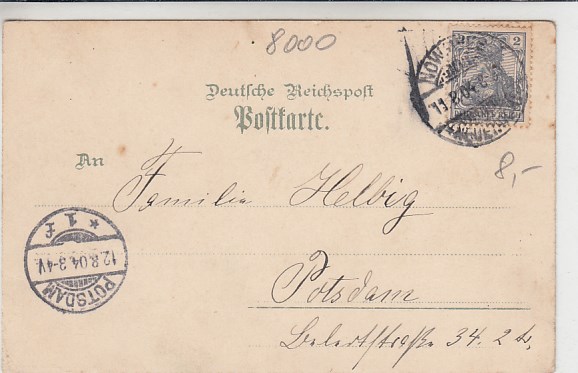 8000
2
11.8.04
Deutsche Reichspost
Postkarte.
8,-
An
Familie Helbig
* 1 f
12.8.04.3-4V.
POTSDAM
Potsdam
34. 2